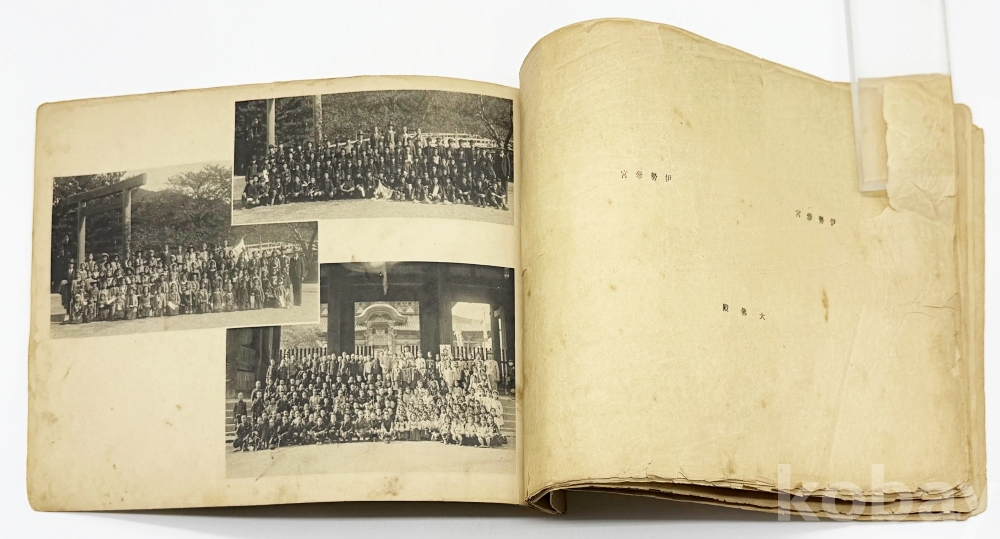 伊勢參宮
伊勢參宮
大佛殿
kobay